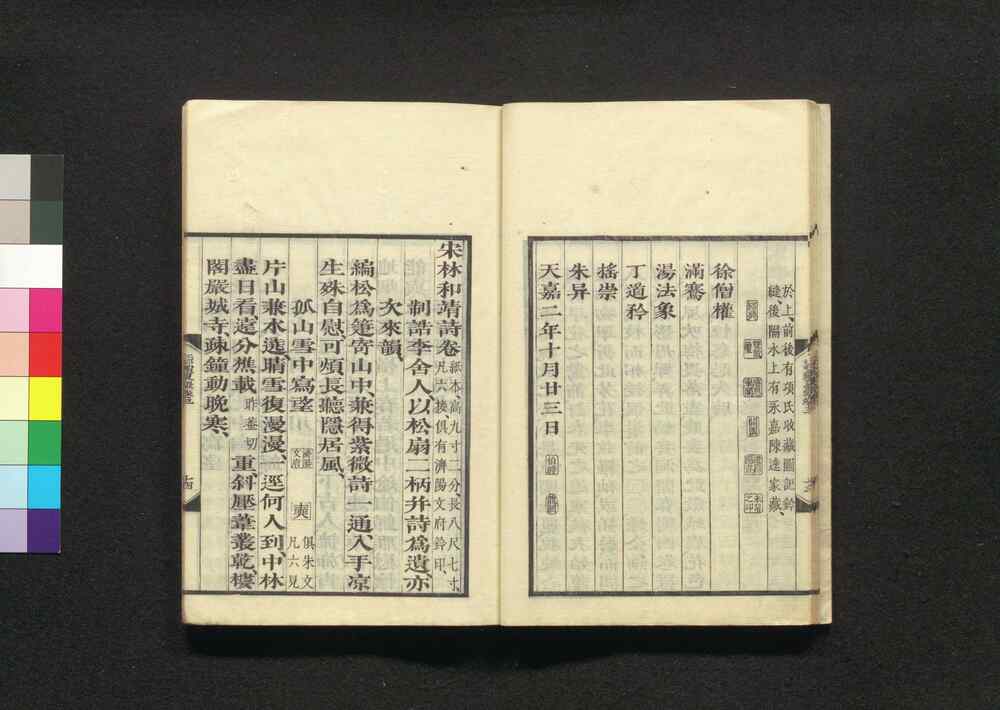 於上、前後有項氏收藏圖記鈐
縫、後隔水上有永嘉陳達家藏、
徐僧權
滿騫
湯法象
丁道矜
搖崇
朱异
天嘉二年十月廿三日
宋林和靖詩卷
紙本、高九寸二分、長八尺七寸、
凡六接、俱有濟陽文府鈐印、
制誥李舍人、以松扇二柄并詩爲遺、亦
次來韻、
編松爲箑寄山中、兼得紫微詩一通、入手凉
生殊自慰、可頻長聽隱居風、
孤山雪中寫望
俱朱文
凡六見
片山兼水遶、晴雪復漫漫、一逕何人到、中林
盡日看、遠分樵載
昨蓋切
重、斜壓葦叢乾、樓
閣嚴城寺、疎鐘動晚寒、